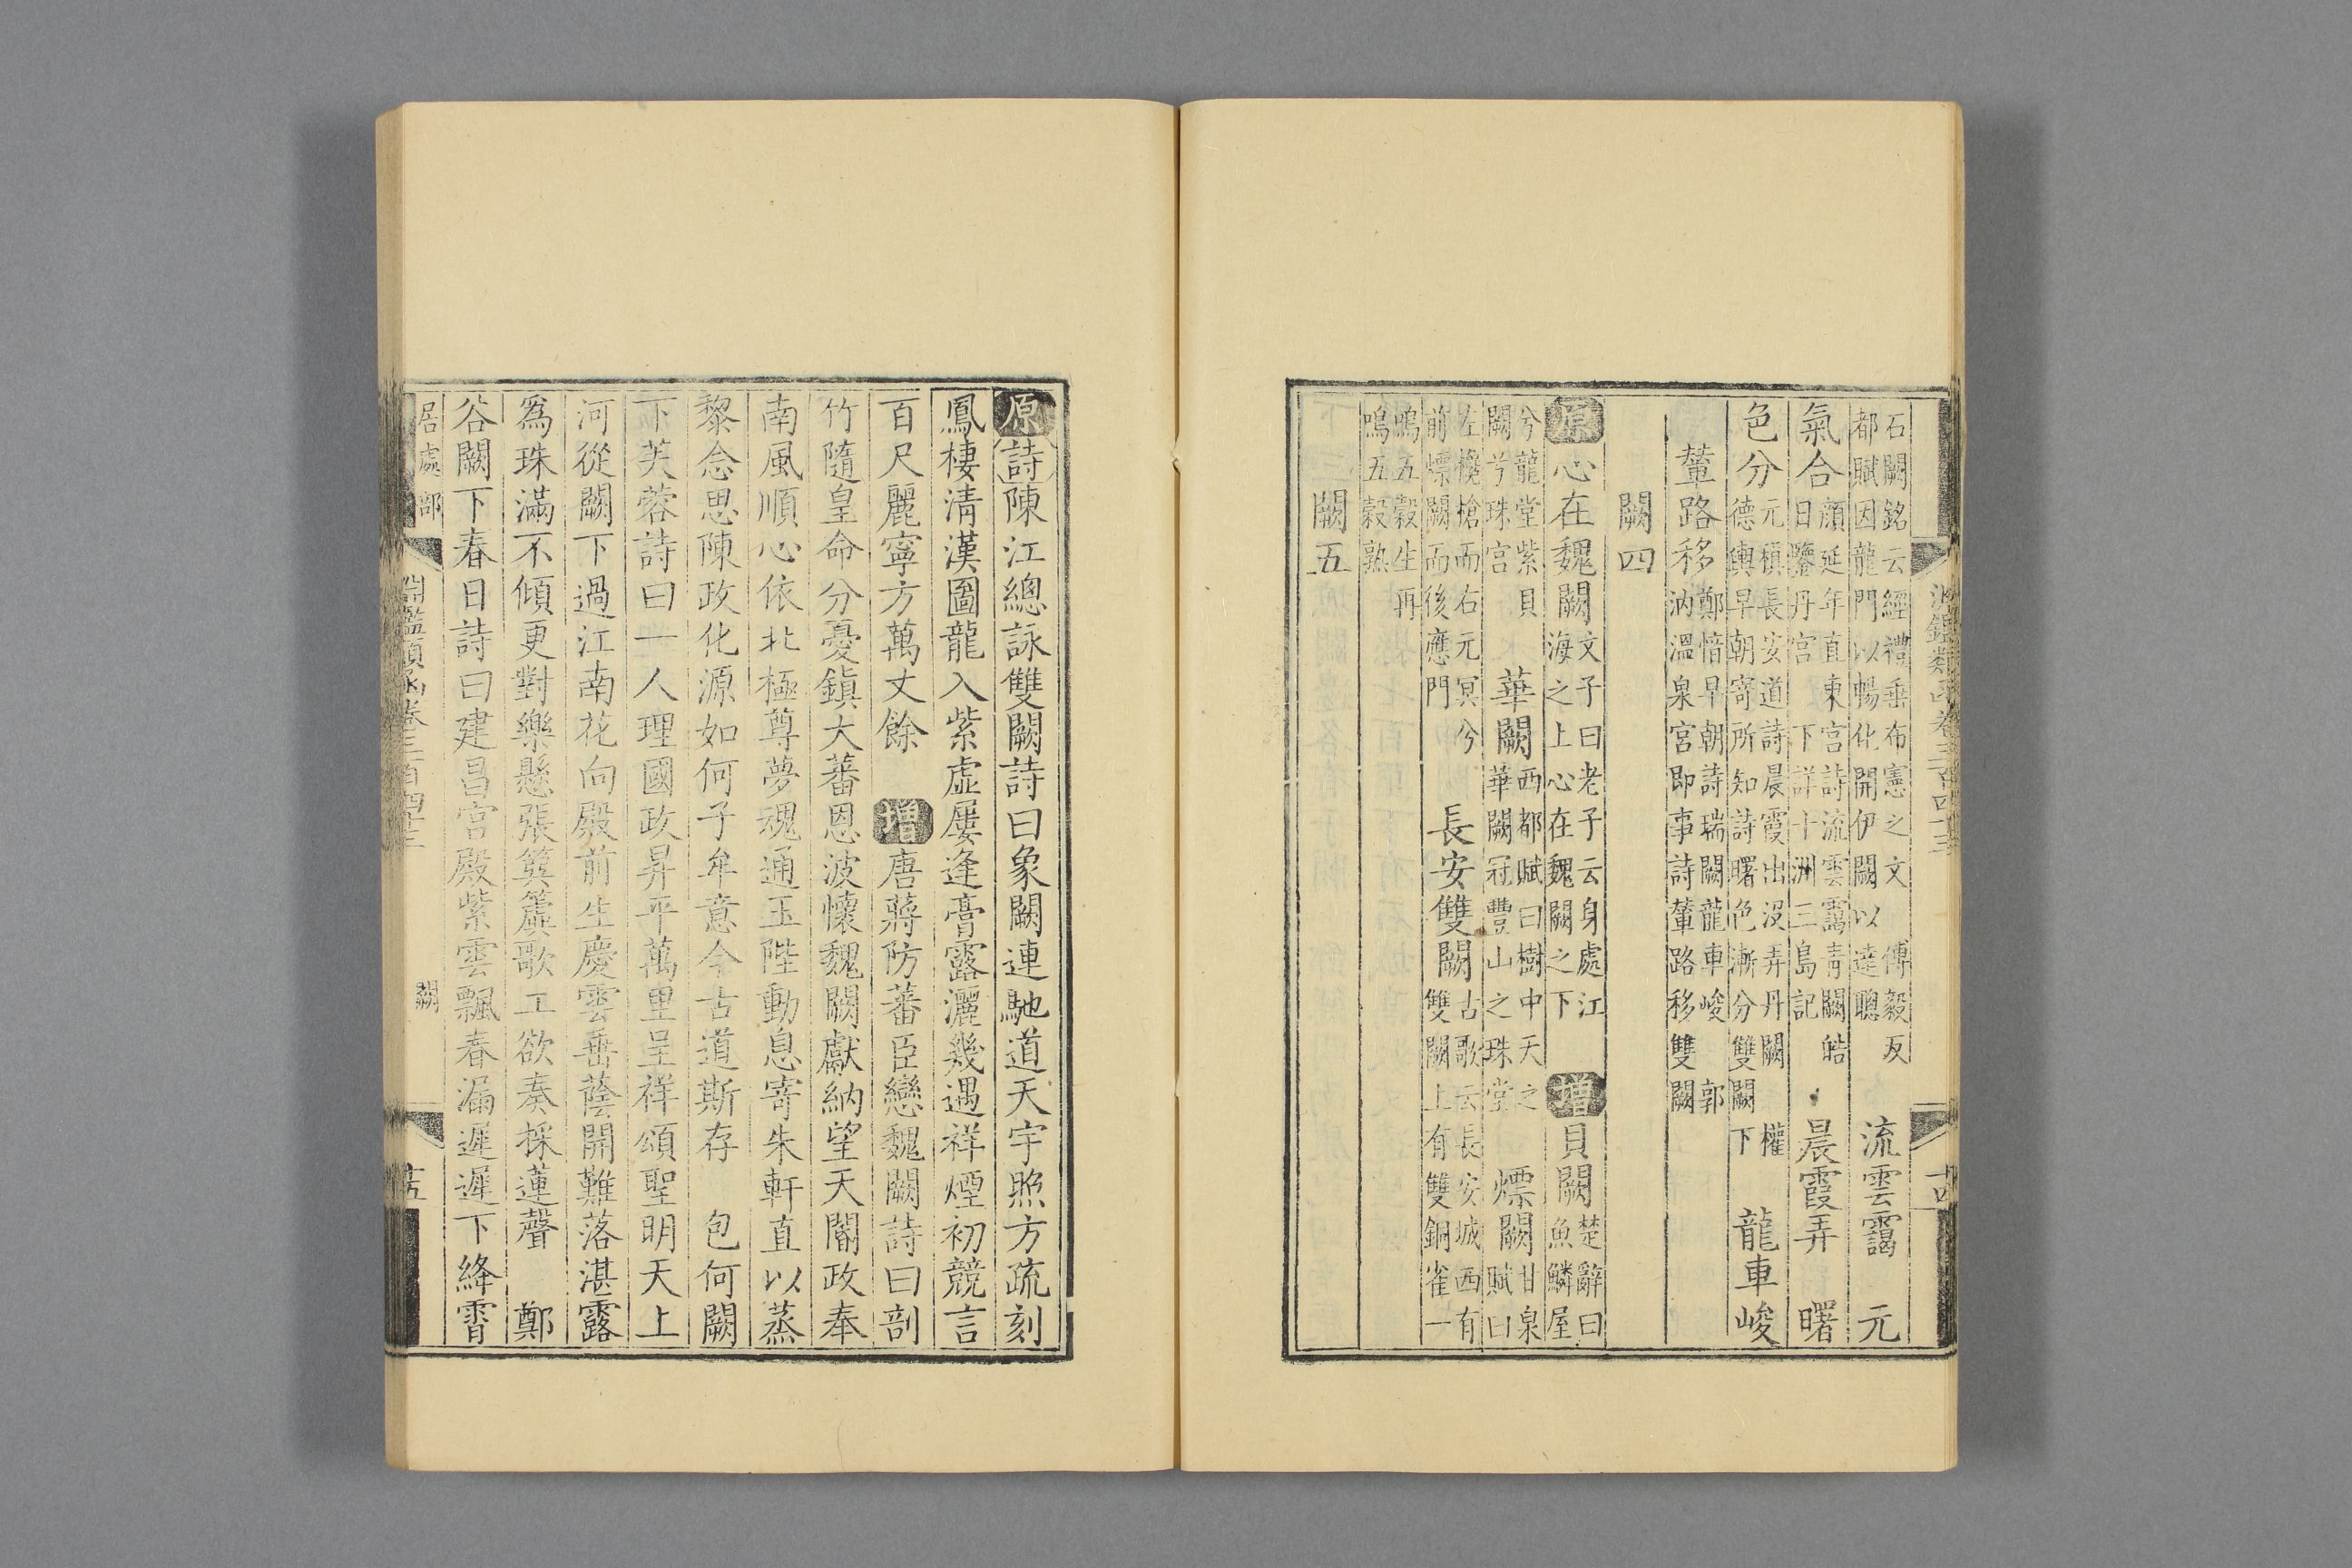 石闕銘云經禮垂布憲之文　傅毅反
都賦因龍門以暢化開伊闕以達聰
流雲靄　元
氣合
顔延年直東宮詩流雲靄青闕皓
日鑒丹宮　下詳十洲三島記
晨霞弄　曙
色分
元稹長安道詩晨霞出没弄丹闕　權
德輿早朝寄所知詩曙色漸分雙闕下
龍車峻
輦路移
鄭愔早朝詩瑞闕龍車峻　郭
汭溫泉宮即事詩輦路移雙闕
闕四
原心在魏闕
文子曰老子云身處江
海之上心在魏闕之下
增貝闕
楚辭曰
魚鱗屋
兮龍堂紫貝
闕兮珠宮
華闕
西都賦曰樹中天之
華闕冠豐山之珠堂
熛闕
甘泉
賦曰
左欃槍而右元冥兮
前熛闕而後應門
長安雙闕
古歌云長安城西有
雙闕上有雙銅雀一
鳴五穀生再
鳴五穀熟
闕五
原詩陳江總詠雙闕詩曰象闕連馳道天宇照方疏刻
鳳棲清漢圖龍入紫虛屢逢膏露灑幾遇祥煙初競言
百尺麗寧方萬丈餘　增唐蔣防蕃臣戀魏闕詩曰剖
竹隨皇命分憂鎭大蕃恩波懷魏闕獻納望天閽政奉
南風順心依北極尊夢魂通玉陛動息寄朱軒直以蒸
黎念思陳政化源如何子牟意今古道斯存　包何闕
下芙蓉詩曰一人理國政昇平萬里呈祥頌聖明天上
河從闕下過江南花向殿前生慶雲垂蔭開難落湛露
爲珠滿不傾更對樂懸張簨簴歌工欲奏採蓮聲　鄭
谷闕下春日詩曰建昌宮殿紫雲飄春漏遲遲下絳霄
居處部　淵鑑類函卷三百四十三　闕　十五